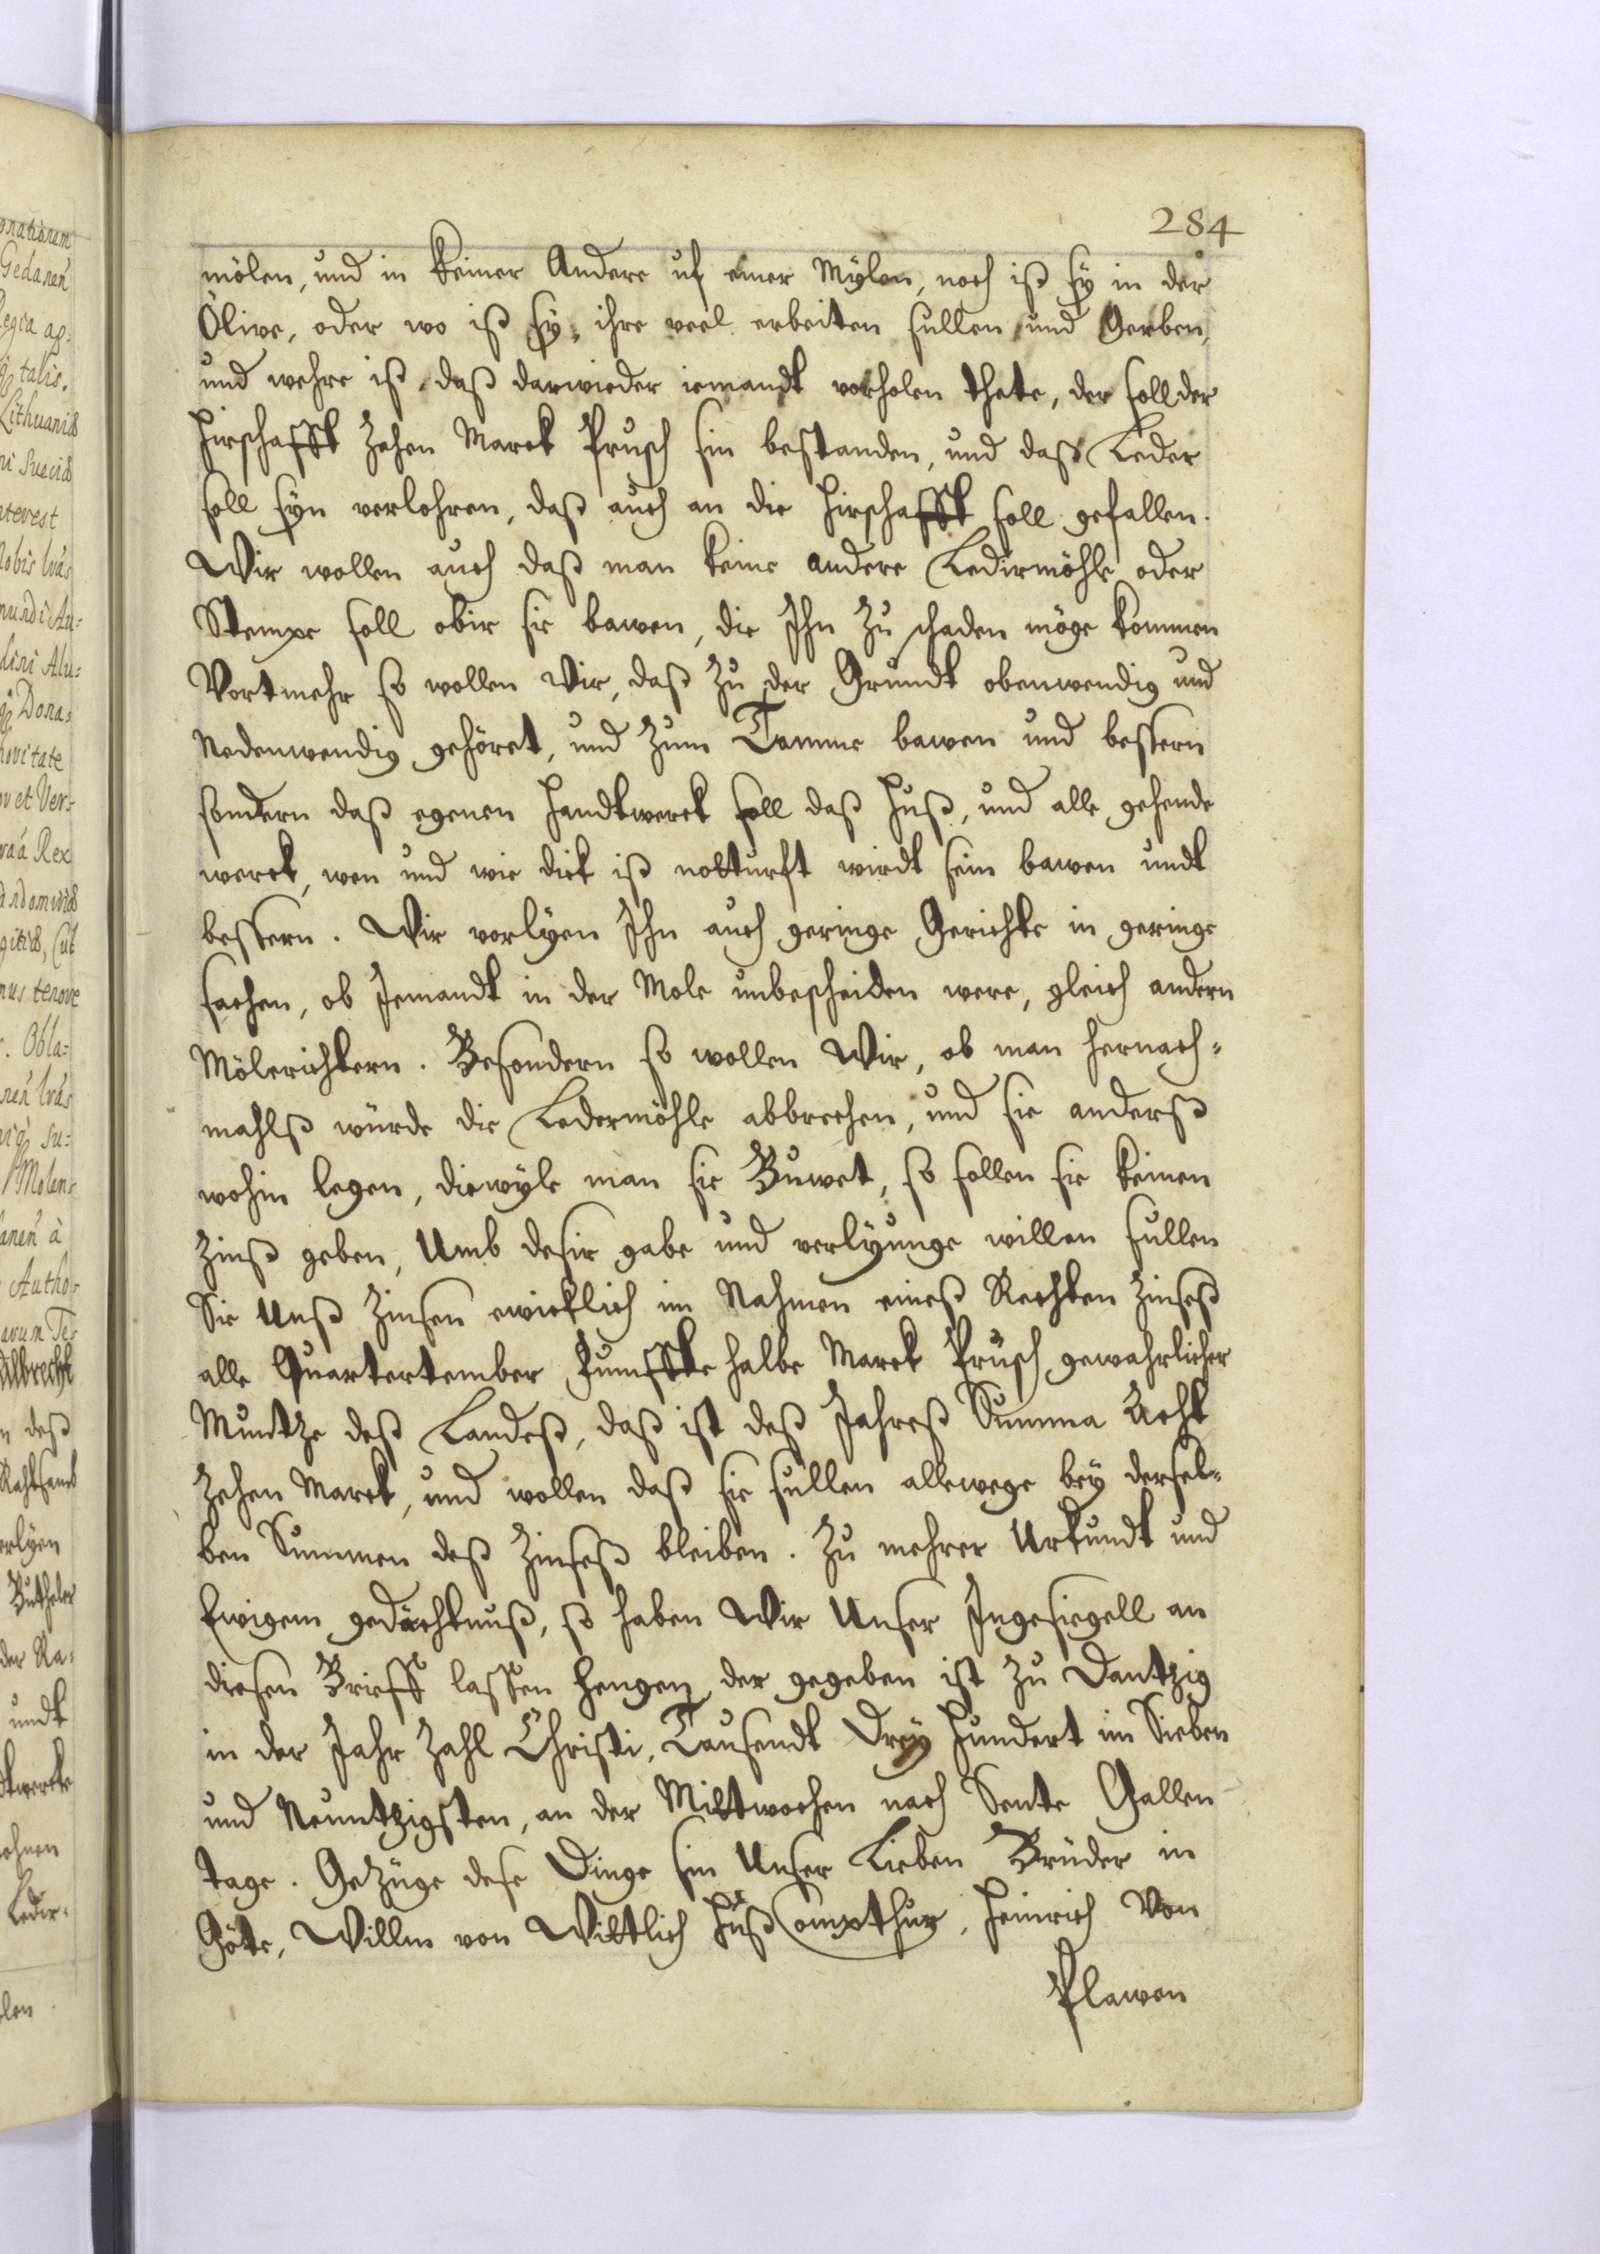 284
mölen, und in keiner Andere uf einer Mÿlen, noch iß sÿ in der
Olive, oder wo iß sÿ, ihre veel erbeiten sullen und Gerben,
und wehre iß, daß darwieder iemandt vorholen thete, der soll der
Hirschafft Zehen Marck Prusch sin bestanden, und daß Leder
soll sÿn verlohren, daß auch an die Hirschafft soll gefallen.
Wir wollen auch daß man keine andere Ledirmöhle oder
Stempe soll obir sie bawen, die Ihn zu schaden möge kommen
Vortmehr so wollen Wir, daß zu der Grundt obenwendig und
Nedenwendig gehöret, und zum Tamme bawen und bessern
sondern daß egenen Handtwerck soll daß Huß, und alle gehende
werck, wen und wie dick iß notturft wirdt sein bawen undt
bessern. Wir vorlÿen Ihn auch geringe Gerichte in geringe
sachen, ob Jemandt in der Mole unbescheiden were, gleich andern
Mölerichtern. Besondern so wollen Wir, ob man hernach=
mahlß würde die Ledermöhle abbrechen, und sie anderß
wohin legen, diewÿle man sie Buwet, so sollen sie keinen
Zinß geben, Umb desir gabe und verlÿunge willen sullen
Sie Unß Zinsen ewicklich im Nahmen eineß Rechten Zinseß
alle Quartertember Fumffte halbe Marck Prüsch gewahrlicher
Muntze deß Landeß, daß ist deß Jahreß Summa Acht
Zehen Marck, und wollen daß sie sullen allewege beÿ dersel=
ben Summen deß Zinseß bleiben. Zu mehrer Urkundt und
Ewigem gedächtnuß, so haben Wir Unser Ingesiegell an
diesen Brieff lassen hengen der gegeben ist zu Dantzig
in der Jahr Zahl Christi, Tausendt Dreÿ Hundert im Sieben
und Neuntzigsten, an der Mittwochen nach Sente Gallen
tage. Gezüge dese Dinge sin Unser Lieben Brüder in
Göte, Willm von Wittlich Huß Compthur, Heinrich Von
Plawen